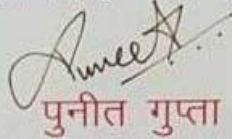 Puneet
पुनीत गुप्ता